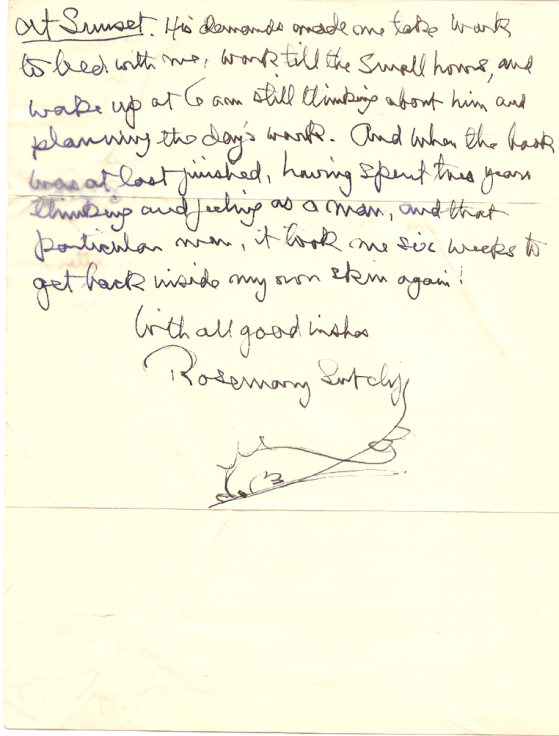 at Sunset. His demands made me take work
to bed with me, work till the small hours, and
wake up at 6 am still thinking about him and
planning the day's work. And when the book
was at last finished, having spent three years
thinking and feeling as a man, and that
particular man, it took me six weeks to
get back inside my own skin again!
With all good wishes
Rosemary Sutcliff